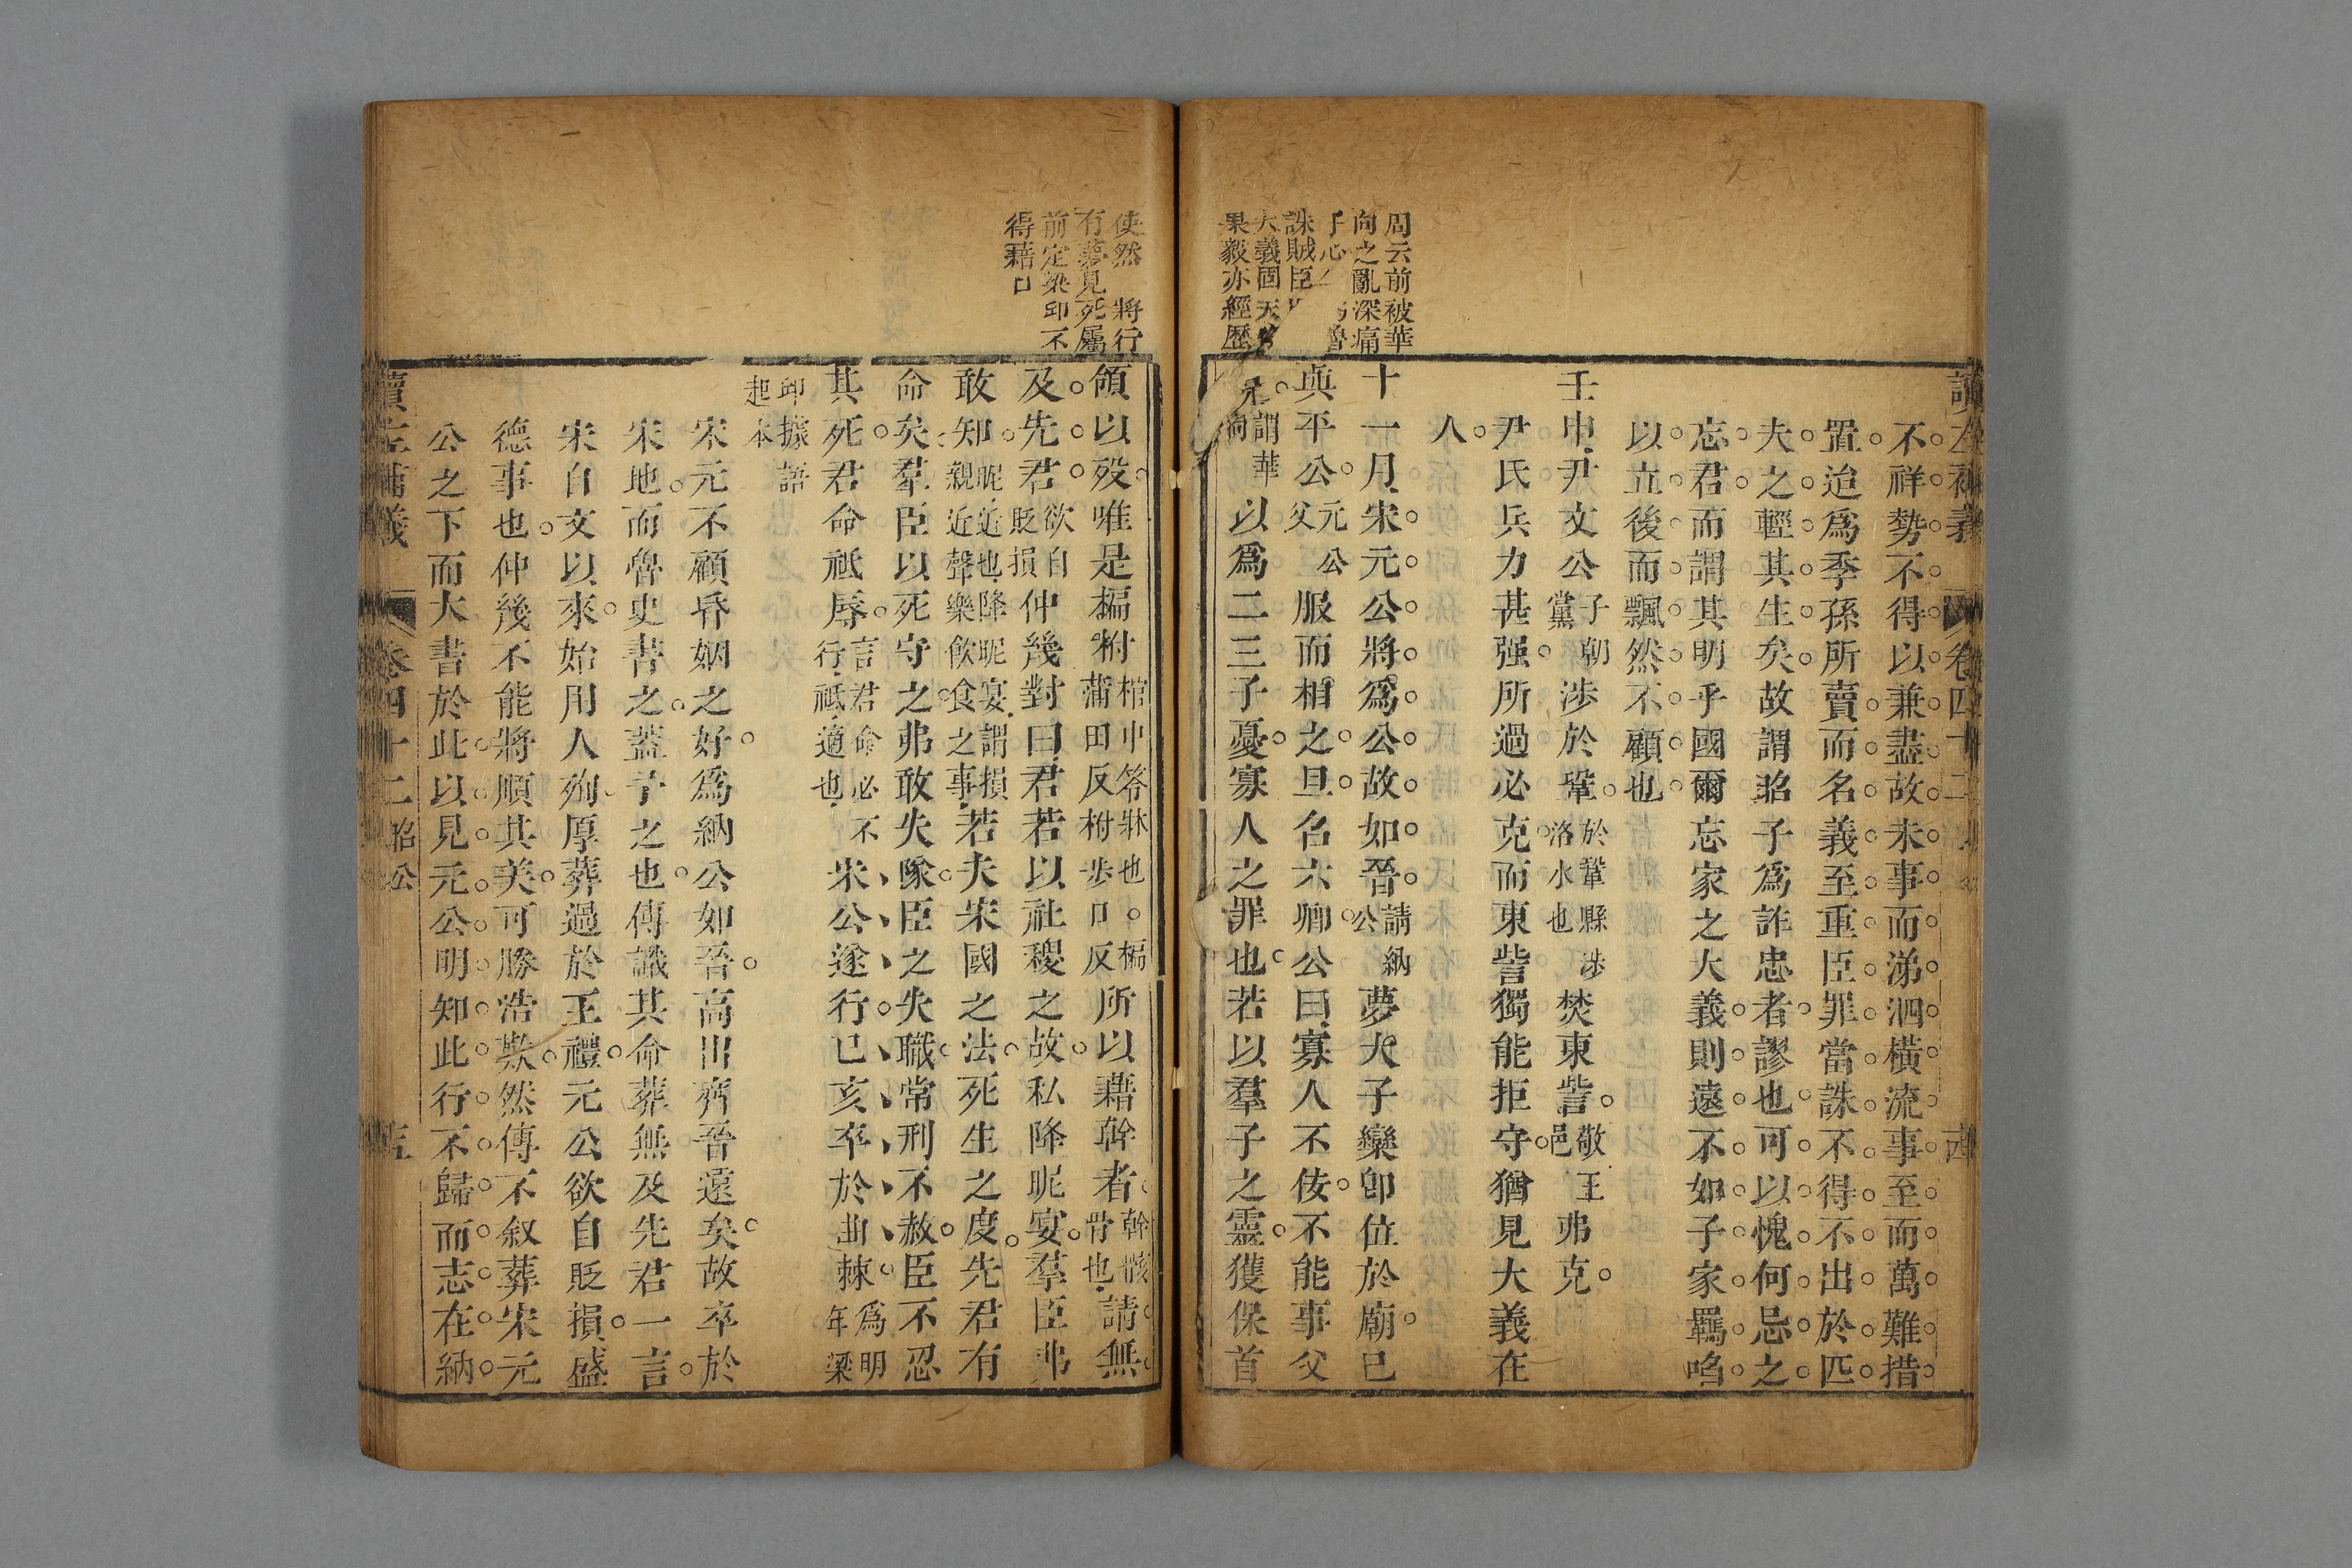 讀左補義 卷四十二
不祥勢不得以兼盡故未事而涕泗橫流事至而萬難措
置迨為季孫所賣而名義至重臣罪當誅不得不出於匹
夫之輕其生矣故謂昭子為詐忠者謬也可以愧何忌之
忘君而謂其明乎國爾忘家之大義則遠不如子家羈啗
以立後而飄然不顧也
壬申尹文公子朝黨涉於鞏於鞏縣涉洛水也焚東訾敬王邑弗克
尹氏兵力甚强所過必克而東訾獨能拒守猶見大義在
人
周云前被華
向之亂深痛
誅賊臣
大義固天
果毅亦經歷
十一月宋元公將為公故如晉請納公夢大子欒卽位於廟己
與平公元公父服而相之旦召六卿公曰寡人不佞不能事父
兄謂華向以為二三子憂寡人之罪也若以羣子之靈獲保首
使然 將行
有夢見死屬
前定梁卬不
得藉口
領以歿唯是楄柎棺中笭牀也。楄蒲田反柎步口反所以藉幹者幹骸骨也請無
及先君欲自貶損仲幾對曰君若以社稷之故私降昵宴羣臣弗
敢知昵近也降昵宴謂損親近聲樂飲食之事若夫宋國之法死生之度先君有
命矣羣臣以死守之弗敢失隊臣之失職常刑不赦臣不忍
其死君命祗辱言君命必不行祗適也宋公遂行己亥卒於曲棘為明年梁
卬據語起本
宋元不顧昏姻之好為納公如晉高出齊晉遠矣故卒於
宋地而魯史書之蓋予之也傳識其命葬無及先君一言
宋自文以來始用人殉厚葬過於王禮元公欲自貶損盛
德事也仲幾不能將順其美可勝浩歎然傳不叙葬宋元
公之下而大書於此以見元公明知此行不歸而志在納
讀左補義 卷四十二 昭公